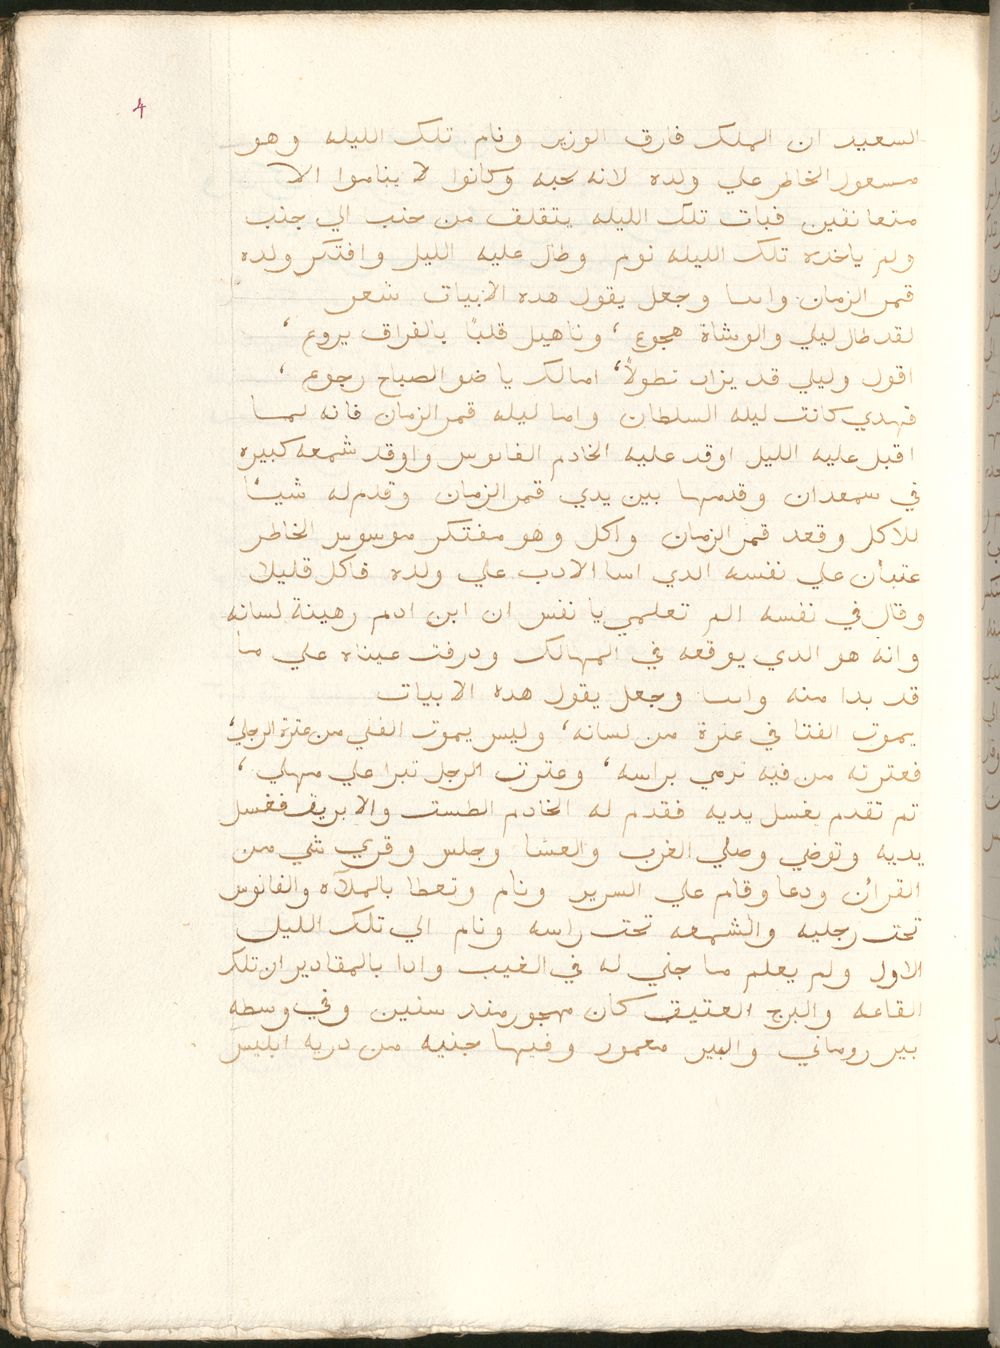 4
السعيد ان الملك فارق الوزير ونام تلك الليله وهو
مسعول الخاطر علي ولده لانه يحبه وكانوا لا يناموا الا
متعانقين فبات تلك الليله يتقلف من جنب الي جنب
ولم ياخده تلك الليله نوم وطال عليه الليل وافتكر ولده
قمر الزمان وانسا وجعل يقول هده الابيات شعر
لقد طال ليلي والوشاة هجوع ، وناهيل قلبًا بالفراق يروع ،
اقول وليلي قد يزاد تطولاً ، امالك يا ضو الصباح رجوع ،
فهدي كانت ليله السلطان واما ليله قمر الزمان فانه لما
اقبل عليه الليل اوقد عليه الخادم الفانوس واوقد شمعه كبيره
في سمعدان وقدمها بين يدي قمر الزمان وقدم له شيئا
للاكل وقعد قمر الزمان واكل وهو مفتكر موسوس الخاطر
عتبان علي نفسه الدي اسا الادب علي ولده فاكل قليلا
وقال في نفسه الم تعلمي يا نفس ان ابن ادم رهينة لسانه
وانه هو الدي يوقعه في المهالك ودرفت عيناه علي ما
قد بدا منه وانسا وجعل يقول هده الابيات
يموت الفتا في عثرة من لسانه ، وليس يموت الفلي من عثرة الرجلي ،
فعثرته من فيه ترمي براسه ، وعثرت الرجل تبرا علي مهلي ،
تم تقدم يغسل يديه فقدم له الخادم الطست والابريق فغسل
يديه وتوضي وصلي الغرب والعشا وجلس وقري شي من
القرآن ودعا وقام علي السرير ونام وتعطا بالملآه والفانوس
تحت رجليه والشمعه تحت راسه ونام الي تلك الليل
الاول ولم يعلم ما جني له في الغيب وادا بالمقادير ان تلك
القاعه والبرج العتيق كان مهجور مند سنين وفي وسطه
بير روماني والبير معمور وفيها جنيه من دريه ابليس